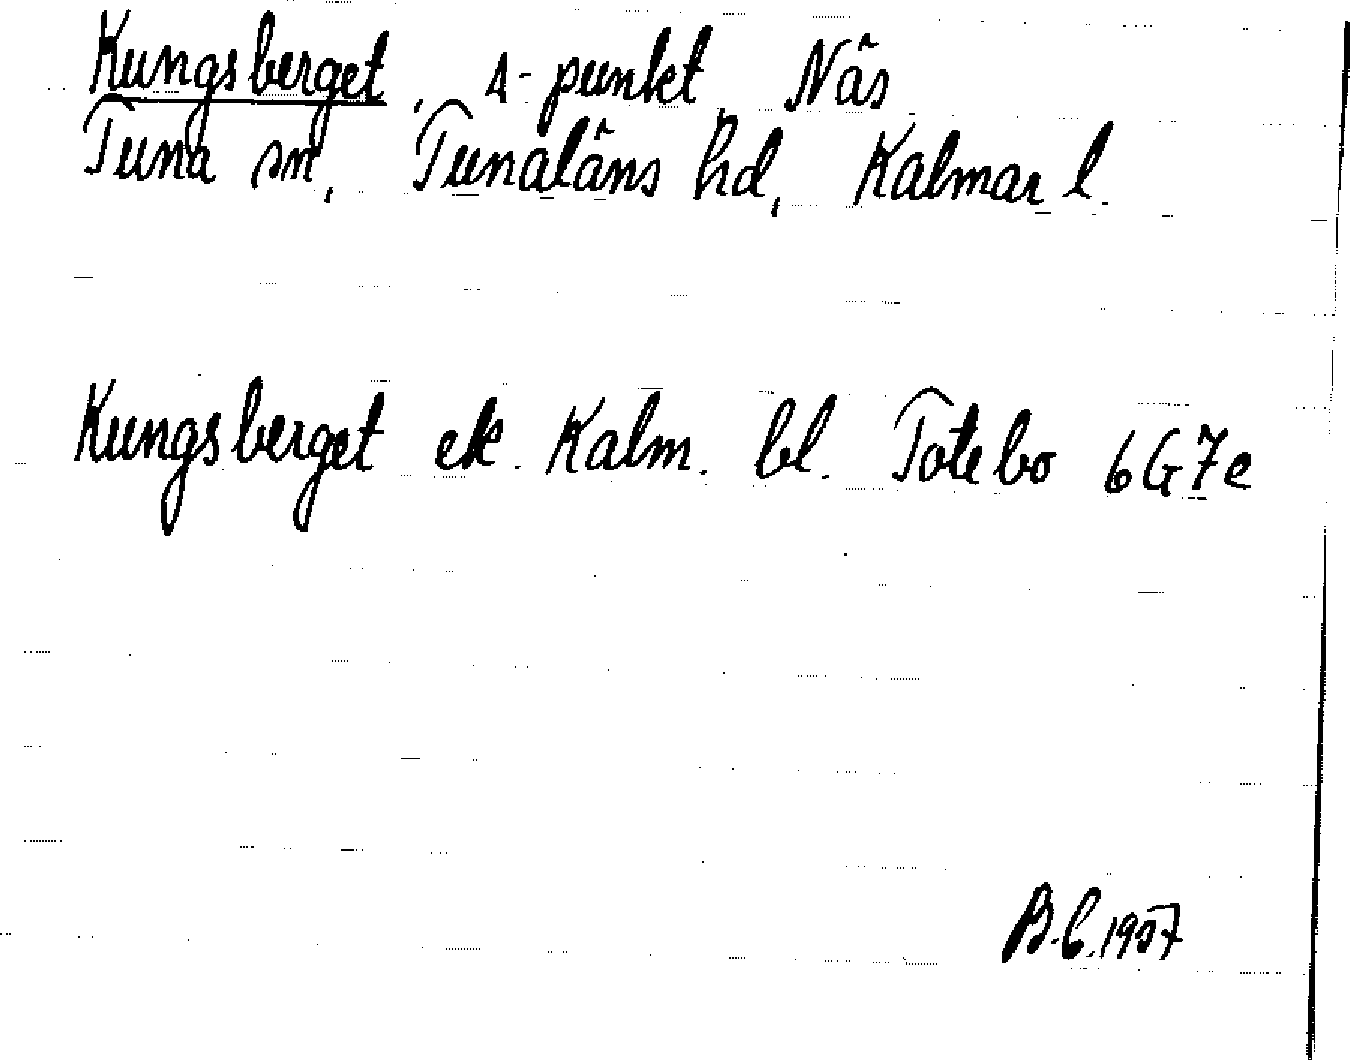 Kungsberget, Δ-punkt Näs
Tuna sn, Tunaläns hd, Kalmar l.
Kungsberget ek. Kalm. bl. Totebo 6G7e
B.C. 1957